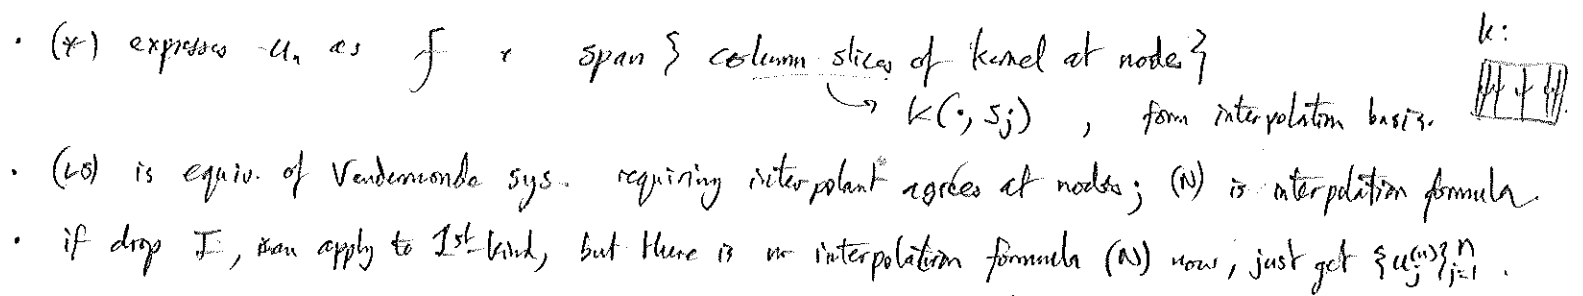 · (*) expresses u_n as f + span { column slices of kernel at nodes }
k:
↳ k(·, s_j) , form interpolation basis.
· (LS) is equiv. of Vandermonde sys. requiring interpolant agrees at nodes; (N) is interpolation formula.
· if drop I, can apply to 1st-kind, but there is no interpolation formula (N) now, just get {u_j^{(n)}}_{j=1}^n .